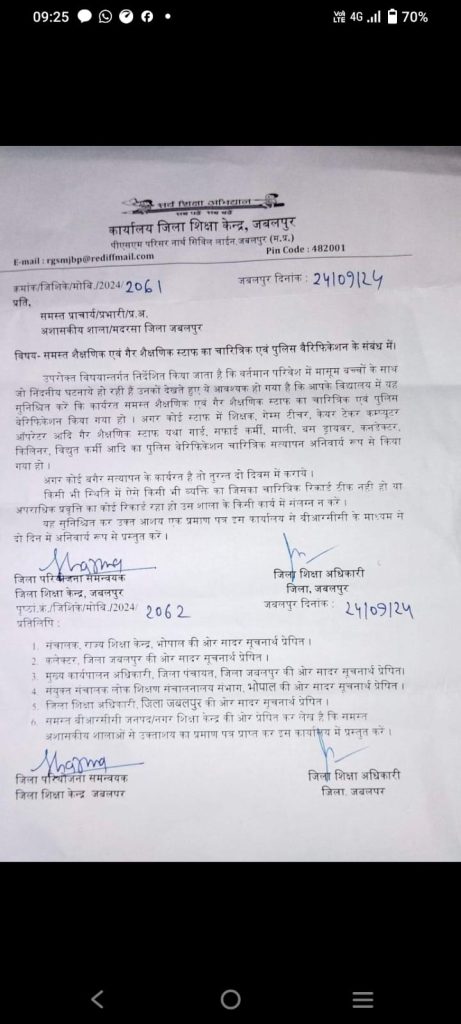 09:25
VoI) LTE 4G 70%
सर्व शिक्षा अभियान
सब पढ़ें सब बढ़ें
कार्यालय जिला शिक्षा केन्द्र, जबलपुर
पीएसएम परिसर नार्थ सिविल लाईन,जबलपुर (म.प्र.)
E-mail : rgsmjbp@rediffmail.com Pin Code : 482001
क्रमांक/जिशिके/मोबि./2024/ 2061 जबलपुर दिनांक : 24/09/24
प्रति,
समस्त प्राचार्य/प्रभारी/प्र.अ.
अशासकीय शाला/मदरसा जिला जबलपुर
विषय- समस्त शैक्षणिक एवं गैर शैक्षणिक स्टाफ का चारित्रिक एवं पुलिस वैरिफिकेशन के संबंध में।
उपरोक्त विषयान्तर्गत निर्देशित किया जाता है कि वर्तमान परिवेश में मासूम बच्चों के साथ
जो निंदनीय घटनाये हो रही हैं उनको देखते हुए ये आवश्यक हो गया है कि आपके विद्यालय में यह
सुनिश्चित करे कि कार्यरत समस्त शैक्षणिक एवं गैर शैक्षणिक स्टाफ का चारित्रिक एवं पुलिस
वेरिफिकेशन किया गया हो । अगर कोई स्टाफ में शिक्षक, गेम्स टीचर, केयर टेकर कम्प्यूटर
ऑपरेटर आदि गैर शैक्षणिक स्टाफ यथा गार्ड, सफाई कर्मी, माली, बस ड्रायवर, कनडेक्टर,
किलिनर, विद्युत कर्मी आदि का पुलिस वेरिफिकेशन चारित्रिक सत्यापन अनिवार्य रूप से किया
गया हो ।
अगर कोई बगैर सत्यापन के कार्यरत है तो तुरन्त दो दिवस में कराये ।
किसी भी स्थिति में ऐसे किसी भी व्यक्ति का जिसका चारित्रिक रिकार्ड ठीक नही हो या
अपराधिक प्रवृत्ति का कोई रिकार्ड रहा हो उस शाला के किसी कार्य में संलग्न न करें ।
यह सुनिश्चित कर उक्त आशय एक प्रमाण पत्र इस कार्यालय से बीआरसीसी के माध्यम से
दो दिन में अनिवार्य रूप से प्रस्तुत करें ।
Sharma
जिला परियोजना समन्वयक जिला शिक्षा अधिकारी
जिला शिक्षा केन्द्र, जबलपुर जिला, जबलपुर
पृष्ठां.क्र./जिशिके/मोबि./2024/ 2062 जबलपुर दिनांक : 24/09/24
प्रतिलिपि :
1. संचालक, राज्य शिक्षा केन्द्र, भोपाल की ओर सादर सूचनार्थ प्रेषित ।
2. कलेक्टर, जिला जबलपुर की ओर सादर सूचनार्थ प्रेषित ।
3. मुख्य कार्यपालन अधिकारी, जिला पंचायत, जिला जबलपुर की ओर सादर सूचनार्थ प्रेषित।
4. संयुक्त संचालक लोक शिक्षण संचालनालय संभाग, भोपाल की ओर सादर सूचनार्थ प्रेषित ।
5. जिला शिक्षा अधिकारी, जिला जबलपुर की ओर सादर सूचनार्थ प्रेषित ।
6. समस्त बीआरसीसी जनपद/नगर शिक्षा केन्द्र की ओर प्रेषित कर लेख है कि समस्त
अशासकीय शालाओं से उक्ताशय का प्रमाण पत्र प्राप्त कर इस कार्यालय में प्रस्तुत करें ।
Sharma
जिला परियोजना समन्वयक जिला शिक्षा अधिकारी
जिला शिक्षा केन्द्र जबलपुर जिला, जबलपुर